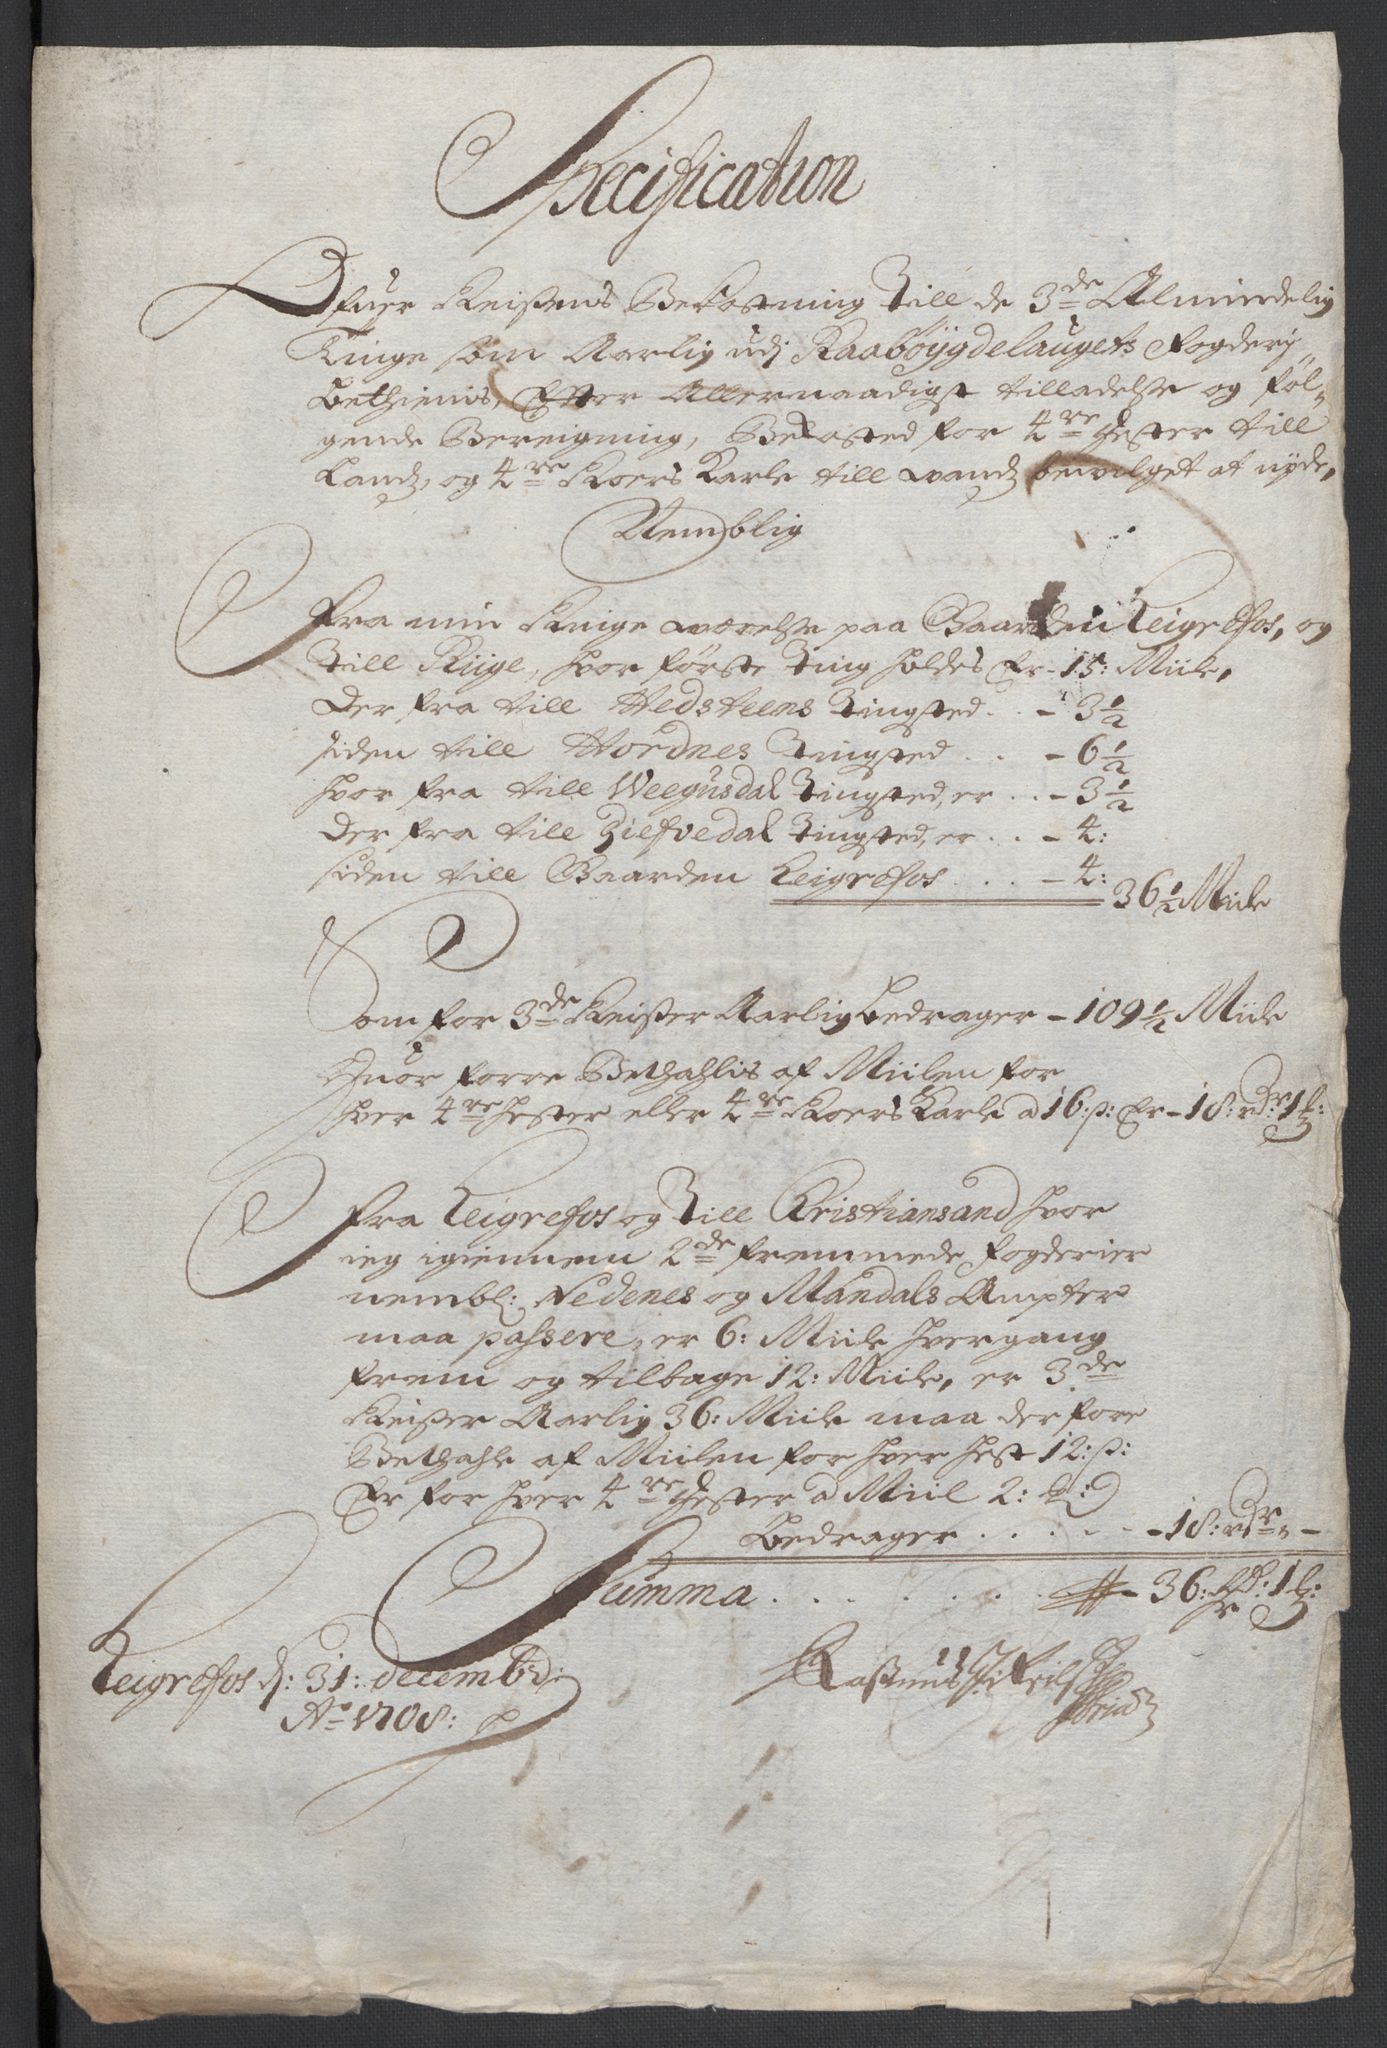 Specification
Ofuer Reisens Bekostning Till de 3de Almindelig
Tinge som Aarlig udj Raabøÿgdelaugets fogderij
betienis, Efter Allernaadigst tilladelse og føl-
gende Bereigning, Bekosted for 4re Hester till
Landz, og 4re Roers Karle till wandz bewilget at nyde,
Nemblig
Fra min Ringe værelse paa Gaarden Leigrefos, og
Till Rÿge, hvor første Ting holdes Er - 15: Miile,
der fra till Hedsteens Tingsted . . - 3½
siden till Hordnes Tingsted . . . - 6½
hvor fra till Weegusdal Tingsted, er . . - 3½
der fra till Ziefvedal Tingsted, er . . - 4:
siden till Gaarden Leigrefos . . . - 4:
36½ Miile
Som for 3de Reiser Aarlig bedrager - 109½ Miile
Huor forre Bethahlis af Miilen for
hver 4re Hester eller 4re Roers Karle a 16: s: Er - 18: rdr 1 ß:
Fra Leigrefos og Till Kristiansand hvor
ieg igiennem 2de fremmede fogderier
nembl: Nedenes og Mandals Ampter
maa passere, er 6: Miile hver gang
frem og tilbage 12: Miile, er 3de
Reiser Aarlig 36: Miile maa der fore
Bethahle af Miilen for hver hest 12: s:
Er for hver 4re Hester a Miil 2: ß:
bedrager . . . . . - 18: rdr " -
Summa . . . . . . . - 36: Rdr: 1 ß:
Leigrefos d: 31: decembr:
Ao 1708:
Rasmus